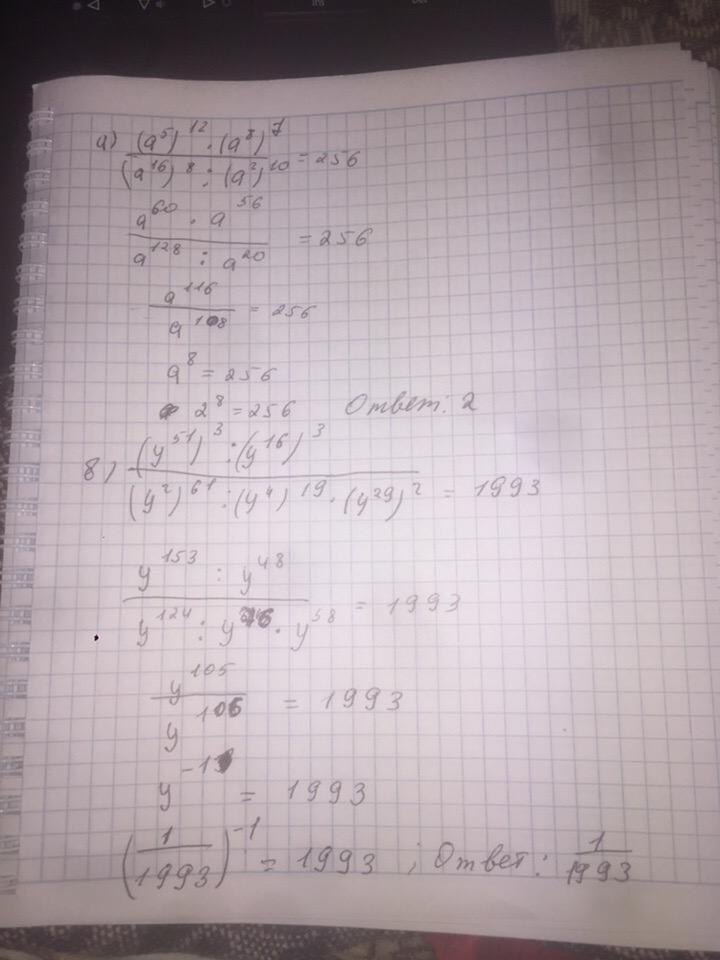 а) (a⁵)¹² · (a⁸)⁷ / (a¹⁶)⁸ : (a²)¹⁰ = 256
a⁶⁰ · a⁵⁶ / a¹²⁸ : a²⁰ = 256
a¹¹⁶ / a¹⁰⁸ = 256
a⁸ = 256
2⁸ = 256 Ответ: 2
в) (y⁵¹)³ : (y¹⁶)³ / (y²)⁶¹ : (y⁴)¹⁹ · (y²⁹)² = 1993
y¹⁵³ : y⁴⁸ / y¹²⁴ : y⁷⁶ · y⁵⁸ = 1993
y¹⁰⁵ / y¹⁰⁶ = 1993
y⁻¹ = 1993
(1/1993)⁻¹ = 1993 ; Ответ: 1/1993